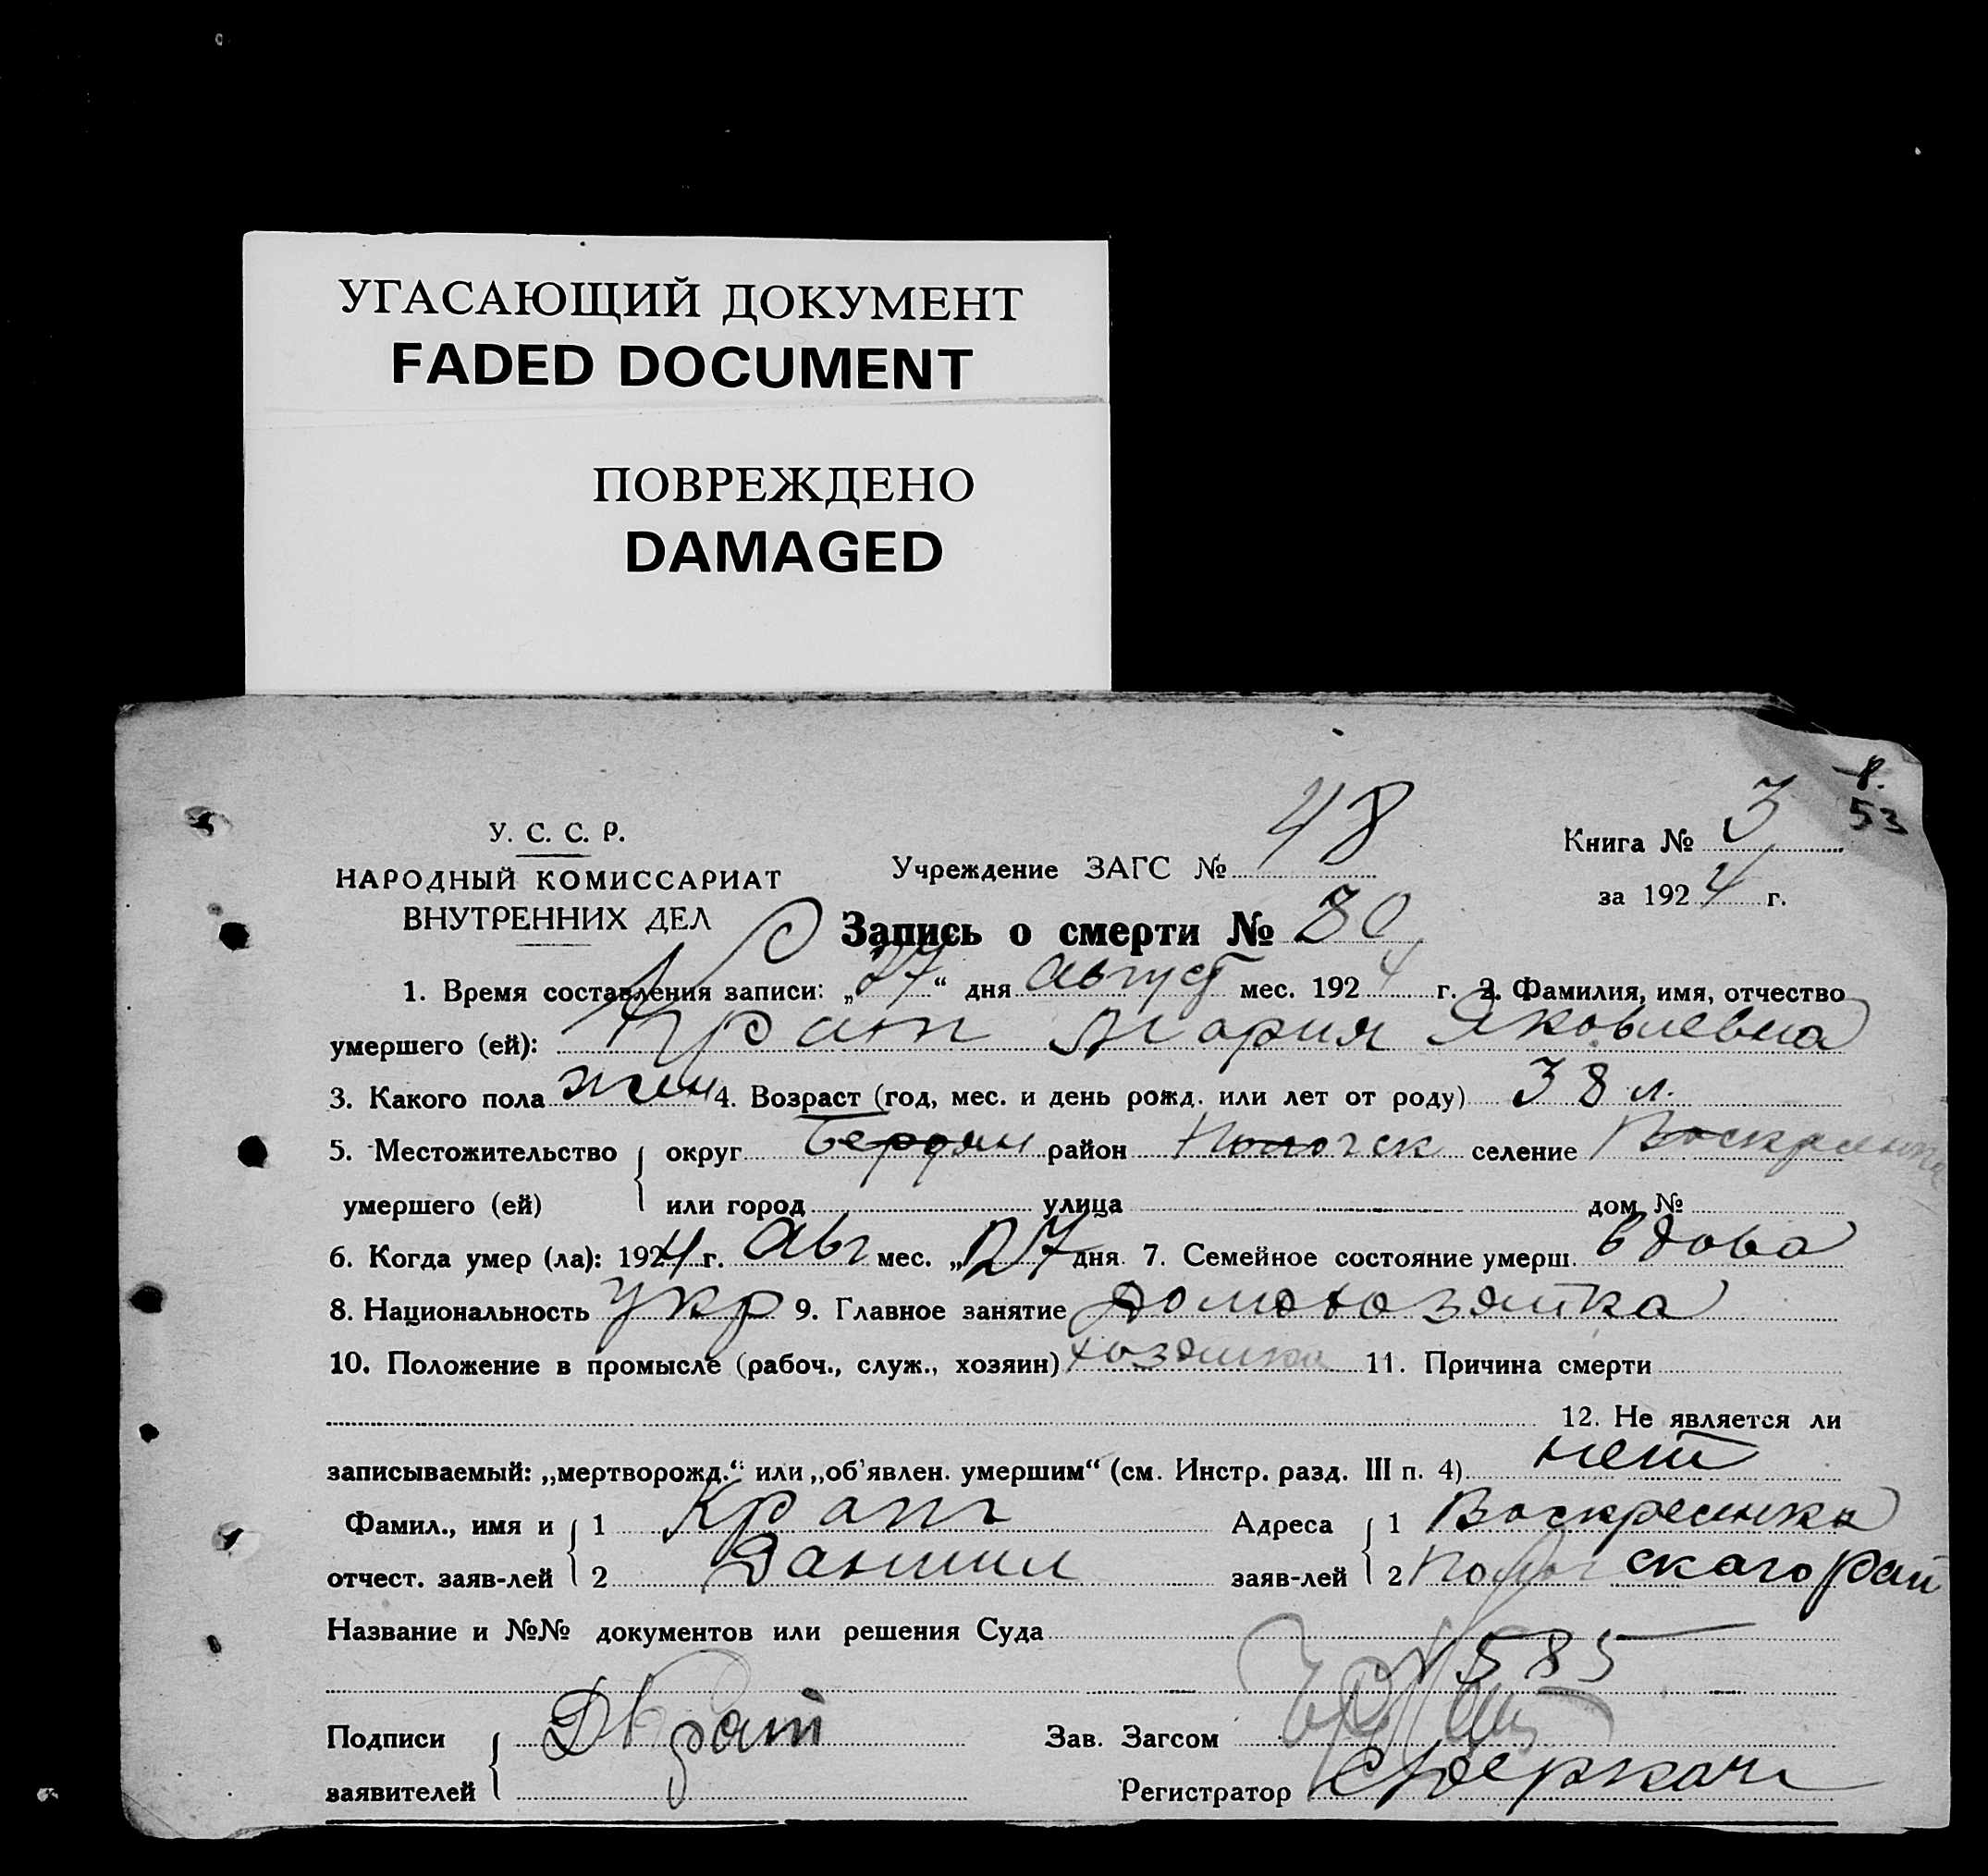 УГАСАЮЩИЙ ДОКУМЕНТ
FADED DOCUMENT
ПОВРЕЖДЕНО
DAMAGED
8.
53
У. С. С. Р.
НАРОДНЫЙ КОМИССАРИАТ
ВНУТРЕННИХ ДЕЛ
Учреждение ЗАГС № 48
Книга № 3
за 1924 г.
Запись о смерти № 30
1. Время составления записи: „27“ дня август мес. 1924 г. 2. Фамилия, имя, отчество
умершего (ей): Крат Мария Яковлевна
3. Какого пола жен 4. Возраст (год, мес. и день рожд. или лет от роду) 38 л.
5. Местожительство умершего (ей) { округ Бердян район Пологск селение Воскресенка
или город улица дом №
6. Когда умер (ла): 1924 г. Авг мес. „27 дня. 7. Семейное состояние умерш. вдова
8. Национальность укр 9. Главное занятие домохозяйка
10. Положение в промысле (рабоч., служ., хозяин) хозяйка 11. Причина смерти
12. Не является ли
записываемый: „мертворожд.“ или „об'явлен. умершим“ (см. Инстр. разд. III п. 4) нет
Фамил., имя и отчест. заяв-лей { 1 Крат
2 Даниил
Адреса заяв-лей { 1 Воскресенка
2 Пологскаго рай
Название и №№ документов или решения Суда
585
Подписи заявителей { ДКрат
Зав. Загсом
Регистратор Деркач